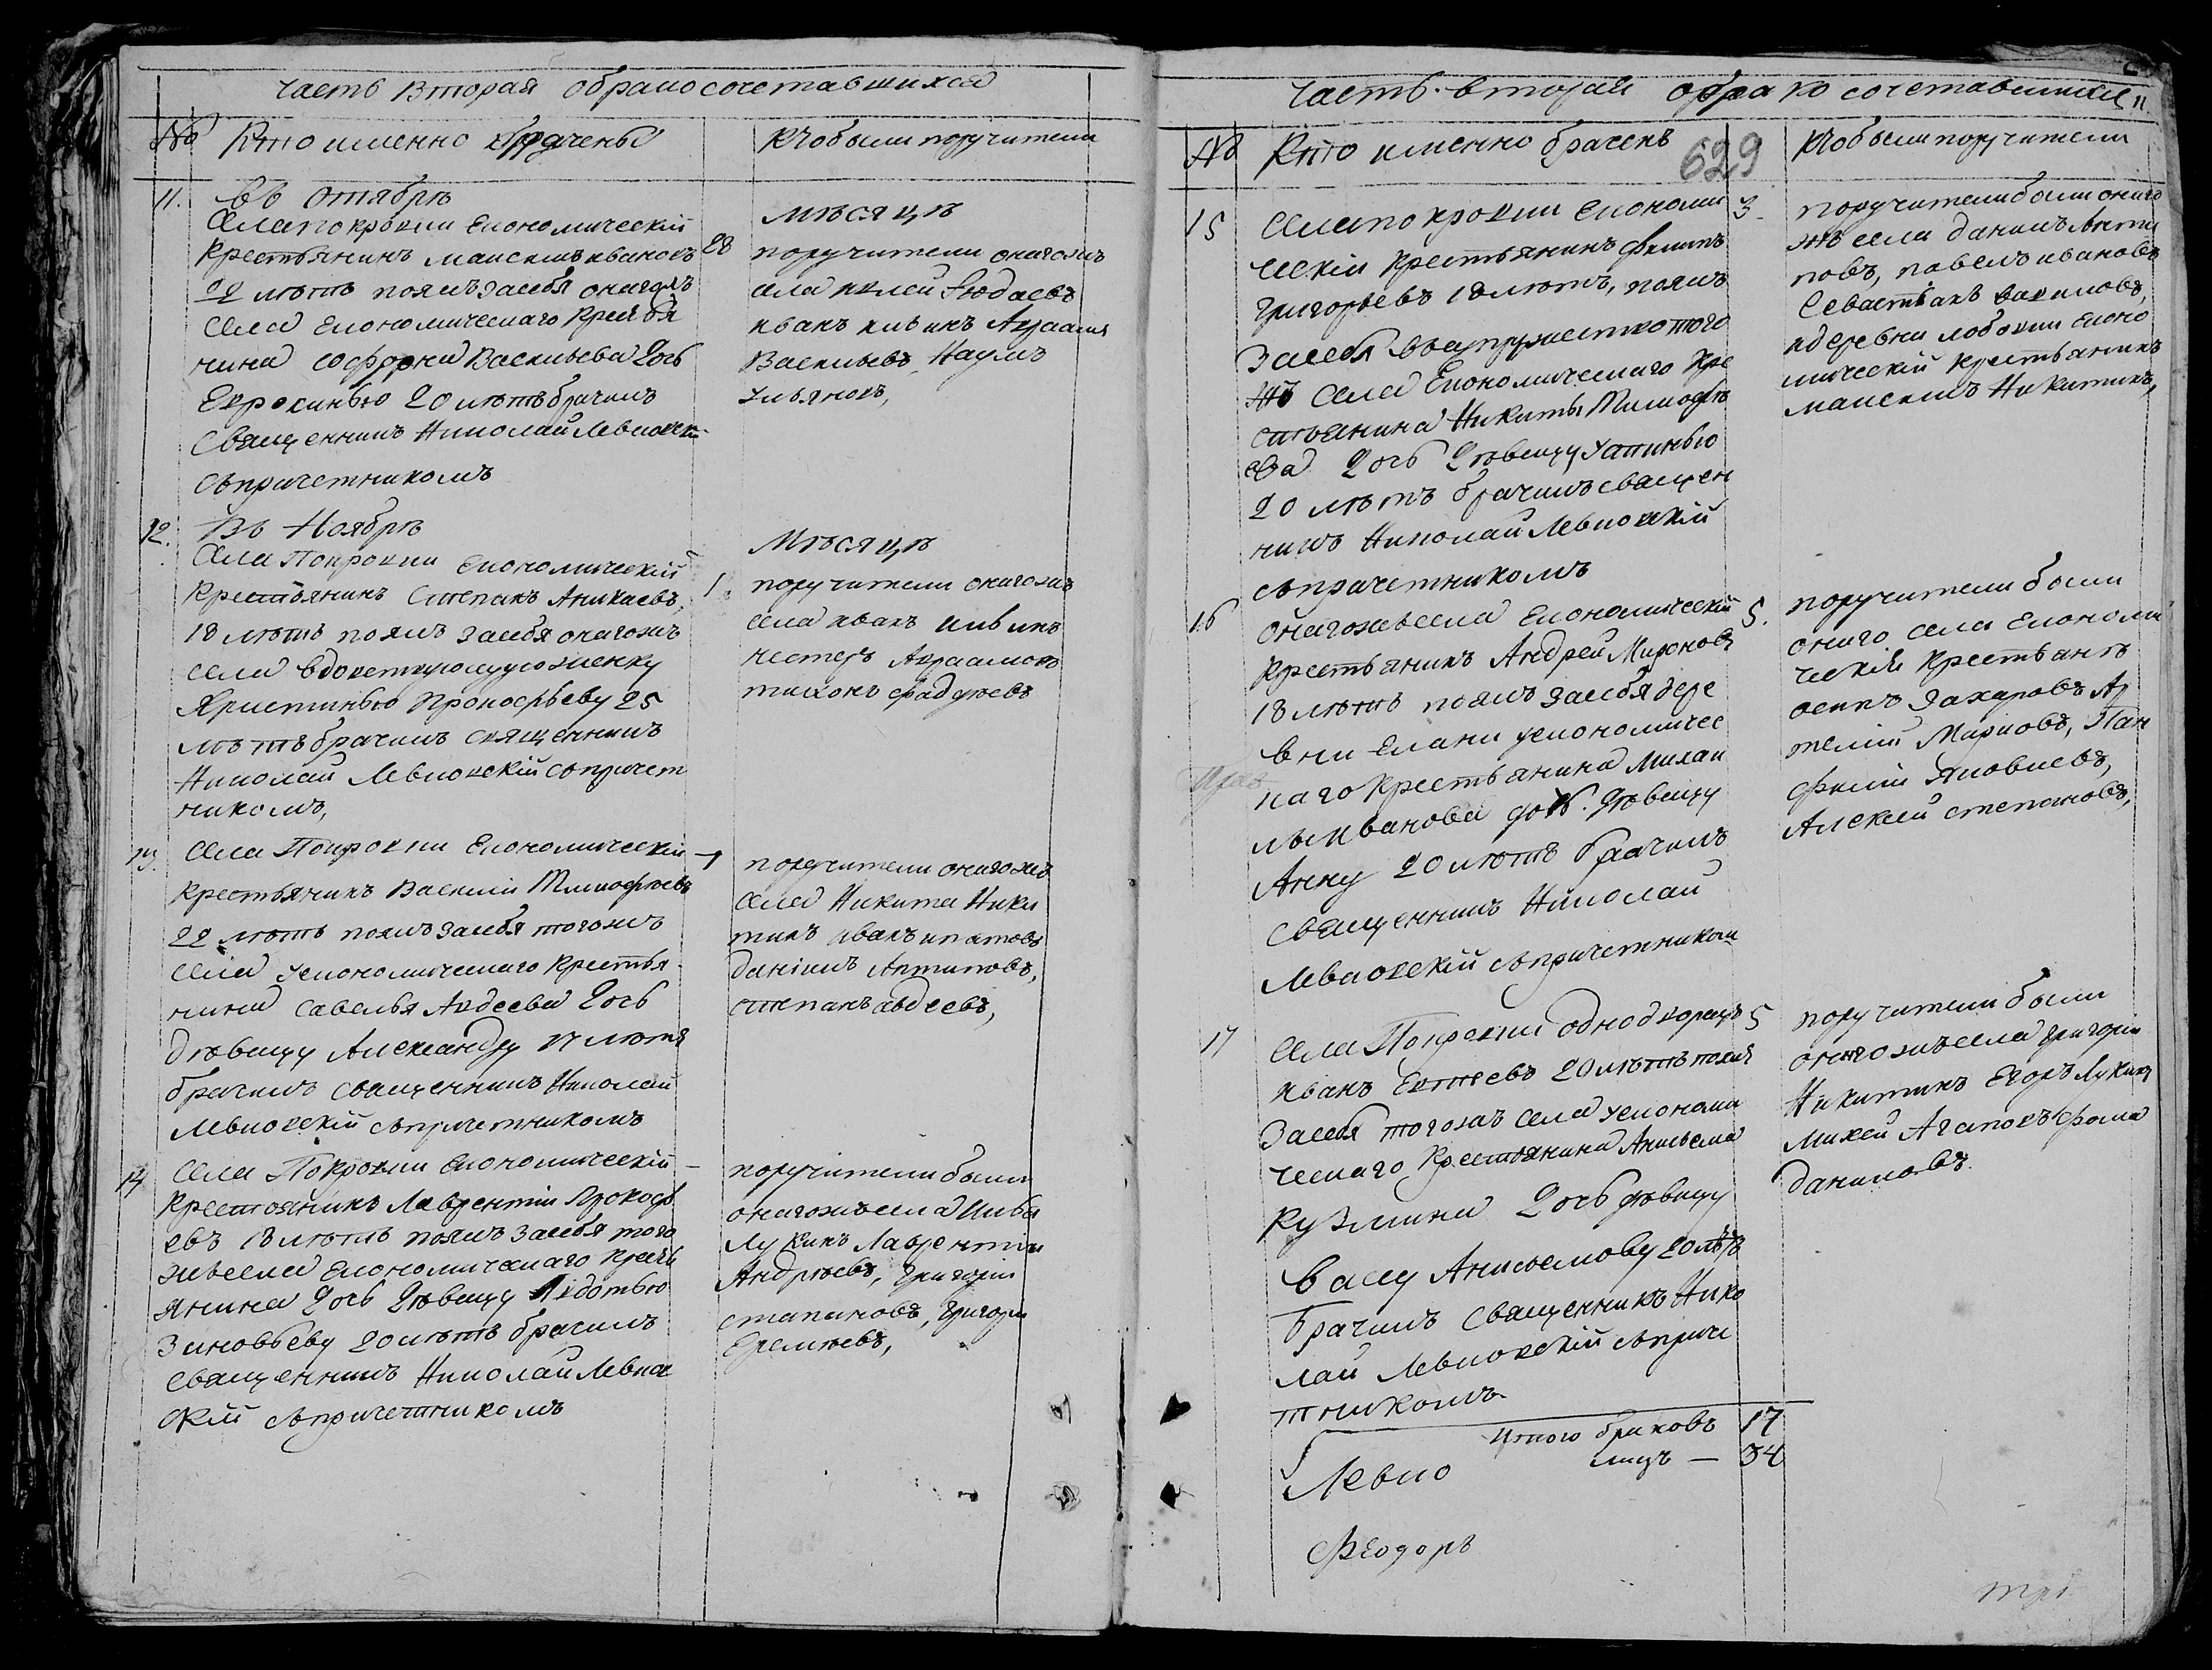 часть вторая обракосочетавшихся
№ Кто именно брачены Кто были поручители
11. въ октябрѣ мѣсяцѣ
села покровки Економическій
Крестьянинъ максимъ ивановъ 28
22 лѣтъ поялъ засебя онагожъ
села економическаго Крестья
нина софрона Васильева дочь
Евросинью 20 лѣтъ брачилъ
священникъ Николай Левковскі
съпричетникомъ
поручители онагожъ
села
иванъ Авраамъ
Васильевъ, Наумъ
Ульяновъ,
12. Въ Ноябрѣ Мѣсяцѣ
села Покровки економическій
Крестьянинъ Степанъ Аникаевъ, 1.
18 лѣтъ поялъ засебя онагожъ
села вдовствующую женку
Христинью Прокофьеву 25
лѣтъ брачилъ священникъ
Николай Левковскій съпричет
никомъ,
поручители онагожъ
села иванъ
нестеръ Авраамовъ
тихонъ фадѣевъ
13. села Покровки Економическій 1
крестьянинъ Василій Тимофѣевъ
22 лѣтъ поялъ засебя тогожъ
села економическаго Крестья
нина савелья Авдеева дочь
дѣвицу Александру 17 лѣтъ
брачилъ священникъ Николай
Левковскій съпричетникомъ
поручители онагожъ
села Никита Ники
тинъ иванъ ипатовъ
данилъ Антиповъ,
степанъ авдеевъ,
14 села Покровки Економическій
Крестьянинъ Лаврентій Прокоф
евъ 18 лѣтъ поялъ засебя того
жъ села економическаго крестьь
янина дочь дѣвицу Авдотью
Зиновьеву 20 лѣтъ брачилъ
священникъ Николай Левков
скій съпричетникомъ
поручители были
онагожъ села
Лукинъ Лаврентій
Андрѣевъ, Григорій
степановъ, Григорій
Еремѣевъ,
часть вторая обракосочетавшихся
№ Кто именно браченъ Кто были поручители
629
15 села покровки економи 3.
ческій крестьянинъ филипъ
Григорьевъ 18 лѣтъ, поялъ
засебя въ супружество того
жъ села Економическаго кре
стьянина Никиты Тимофѣ
ева дочь дѣвицу устинью
20 лѣтъ брачилъ священ
никъ Николай Левковскій
съпричетникомъ
поручители были онаго
жъ села данилъ Анти
повъ, павелъ ивановъ
Севастьянъ вавиловъ,
идеревни економ
ическій крестьянинъ
максимъ Никитинъ,
16 онагожъ села економическій 5.
крестьянинъ Андрей Мироновъ
18 лѣтъ поялъ засебя дере
вни елани економичес
каго крестьянина михаи
лы иванова дочь дѣвицу
Анну 20 лѣтъ брачилъ
священникъ Николай
Левковскій съпричетником
поручители были
онаго села економи
ческія крестьянѣ
осипъ Захаровъ Ар
темій Марковъ, Пан
филій Яковлевъ,
Алексѣй степановъ,
17 села Покровки однодворецъ 5
иванъ 20 лѣтъ поялъ
засебя тогожъ села економи
ческаго Крестьянина Анисьема
кузмина дочь дѣвицу
васу Анисьемову 20 лѣтъ
Брачилъ священникъ Нико
лай Левковскій съприче
тникомъ
поручители были
онагожъ села Григорій
Никитинъ Егоръ Лукинъ
михей Агаповъ фома
даниловъ.
Итого браковъ 17
лицъ — 34
Левко
Феодоръ